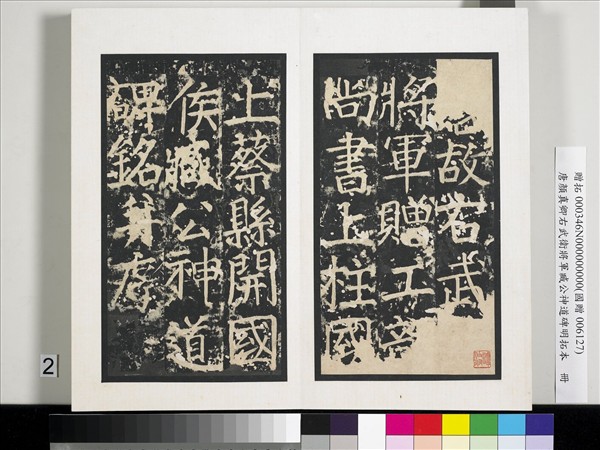 故右武
將軍贈工部
尚書上柱國
上蔡縣開國
侯臧公神道
碑銘并序
贈拓 000346N000000000(國贈 006127)
唐顏真卿右武衛將軍臧公神道碑明拓本 冊
2